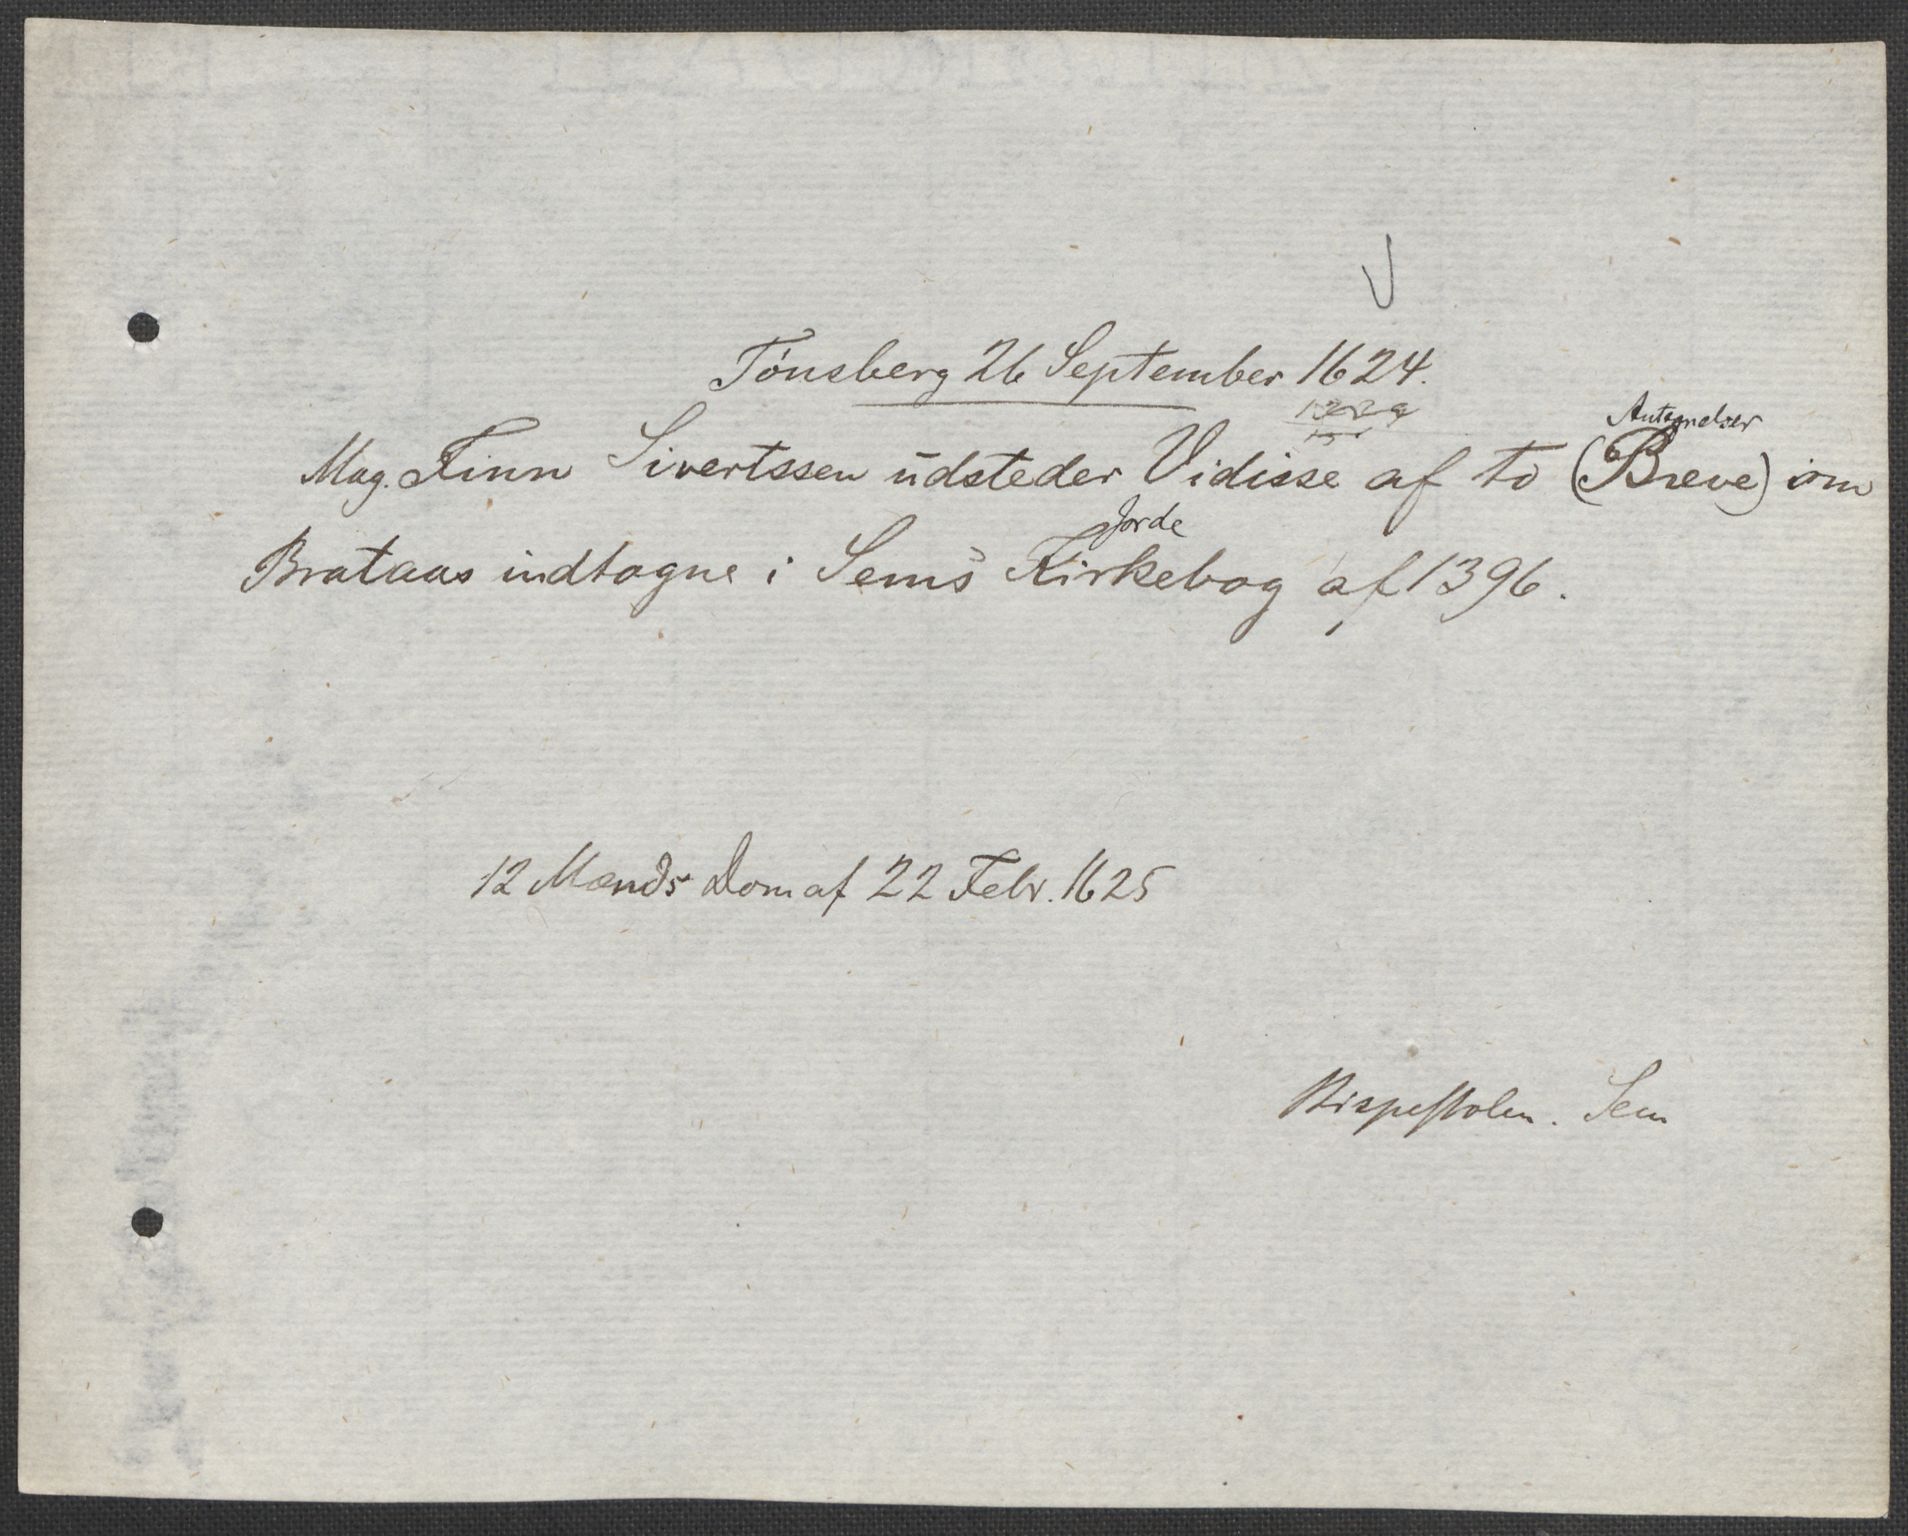 Tønsberg 26 September 1624.
Antegnelser
Mag. Finn Sivertssen udsteder Vidisse af to (Breve) om
Jorde
Brataas indtagne i Sems Kirkebog af 1396.
12 Mænds Dom af 22 Febr. 1625
Bispestolen. Sem